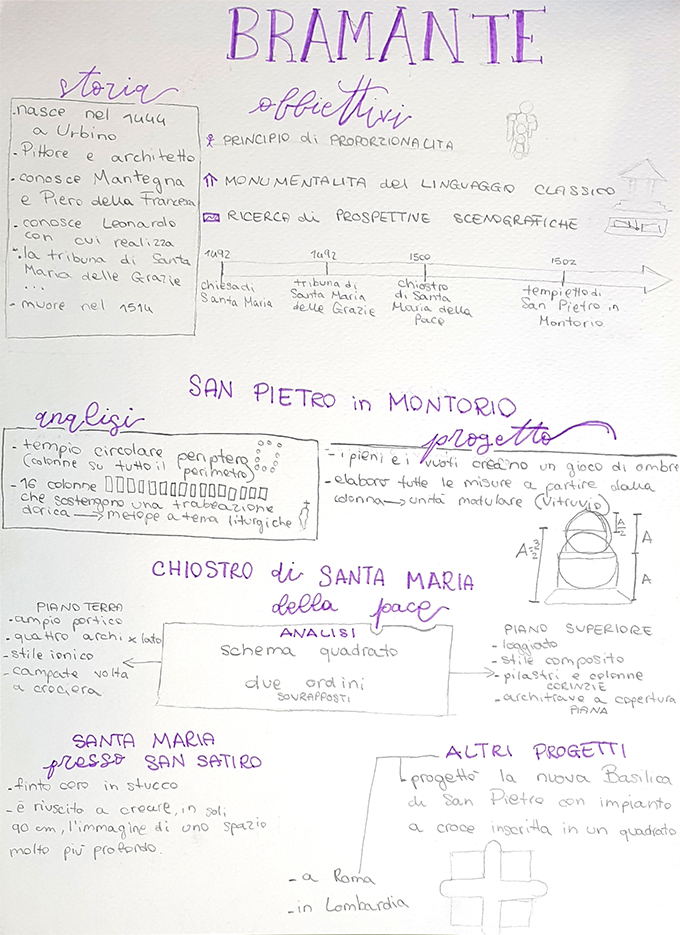 BRAMANTE
storia
- nasce nel 1444
a Urbino
- Pittore e architetto
- conosce Mantegna
e Piero della Francesca
- conosce Leonardo
con cui realizza
la tribuna di Santa
Maria delle Grazie
...
- muore nel 1514
obbiettivi
PRINCIPIO di PROPORZIONALITA
MONUMENTALITA del LINGUAGGIO CLASSICO
RICERCA di PROSPETTIVE SCENOGRAFICHE
1492 1492 1500 1502
chiesa di
Santa Maria
tribuna di
Santa Maria
delle Grazie
chiostro
di Santa
Maria della
Pace
tempietto di
San Pietro in
Montorio
SAN PIETRO in MONTORIO
analisi
- tempio circolare periptero
(colonne su tutto il perimetro)
- 16 colonne
che sostengono una trabeazione
dorica → metope a tema liturgiche
progetto
- i pieni e i vuoti creano un gioco di ombre
- elaboro tutte le misure a partire dalla
colonna → unità modulare (Vitruvio)
A/2
A
A
CHIOSTRO di SANTA MARIA
della pace
PIANO TERRA
- ampio portico
- quattro archi x lato
- stile ionico
- campate volta
a crociera
ANALISI
schema quadrato
due ordini
SOVRAPPOSTI
PIANO SUPERIORE
- loggiato
- stile composito
- pilastri e colonne
CORINZIE
- architrave a copertura
PIANA
SANTA MARIA
presso SAN SATIRO
- finto coro in stucco
- è riuscito a creare, in soli
90 cm, l'immagine di uno spazio
molto più profondo.
ALTRI PROGETTI
progettò la nuova Basilica
di San Pietro con impianto
a croce inscritta in un quadrato
- a Roma
- in Lombardia